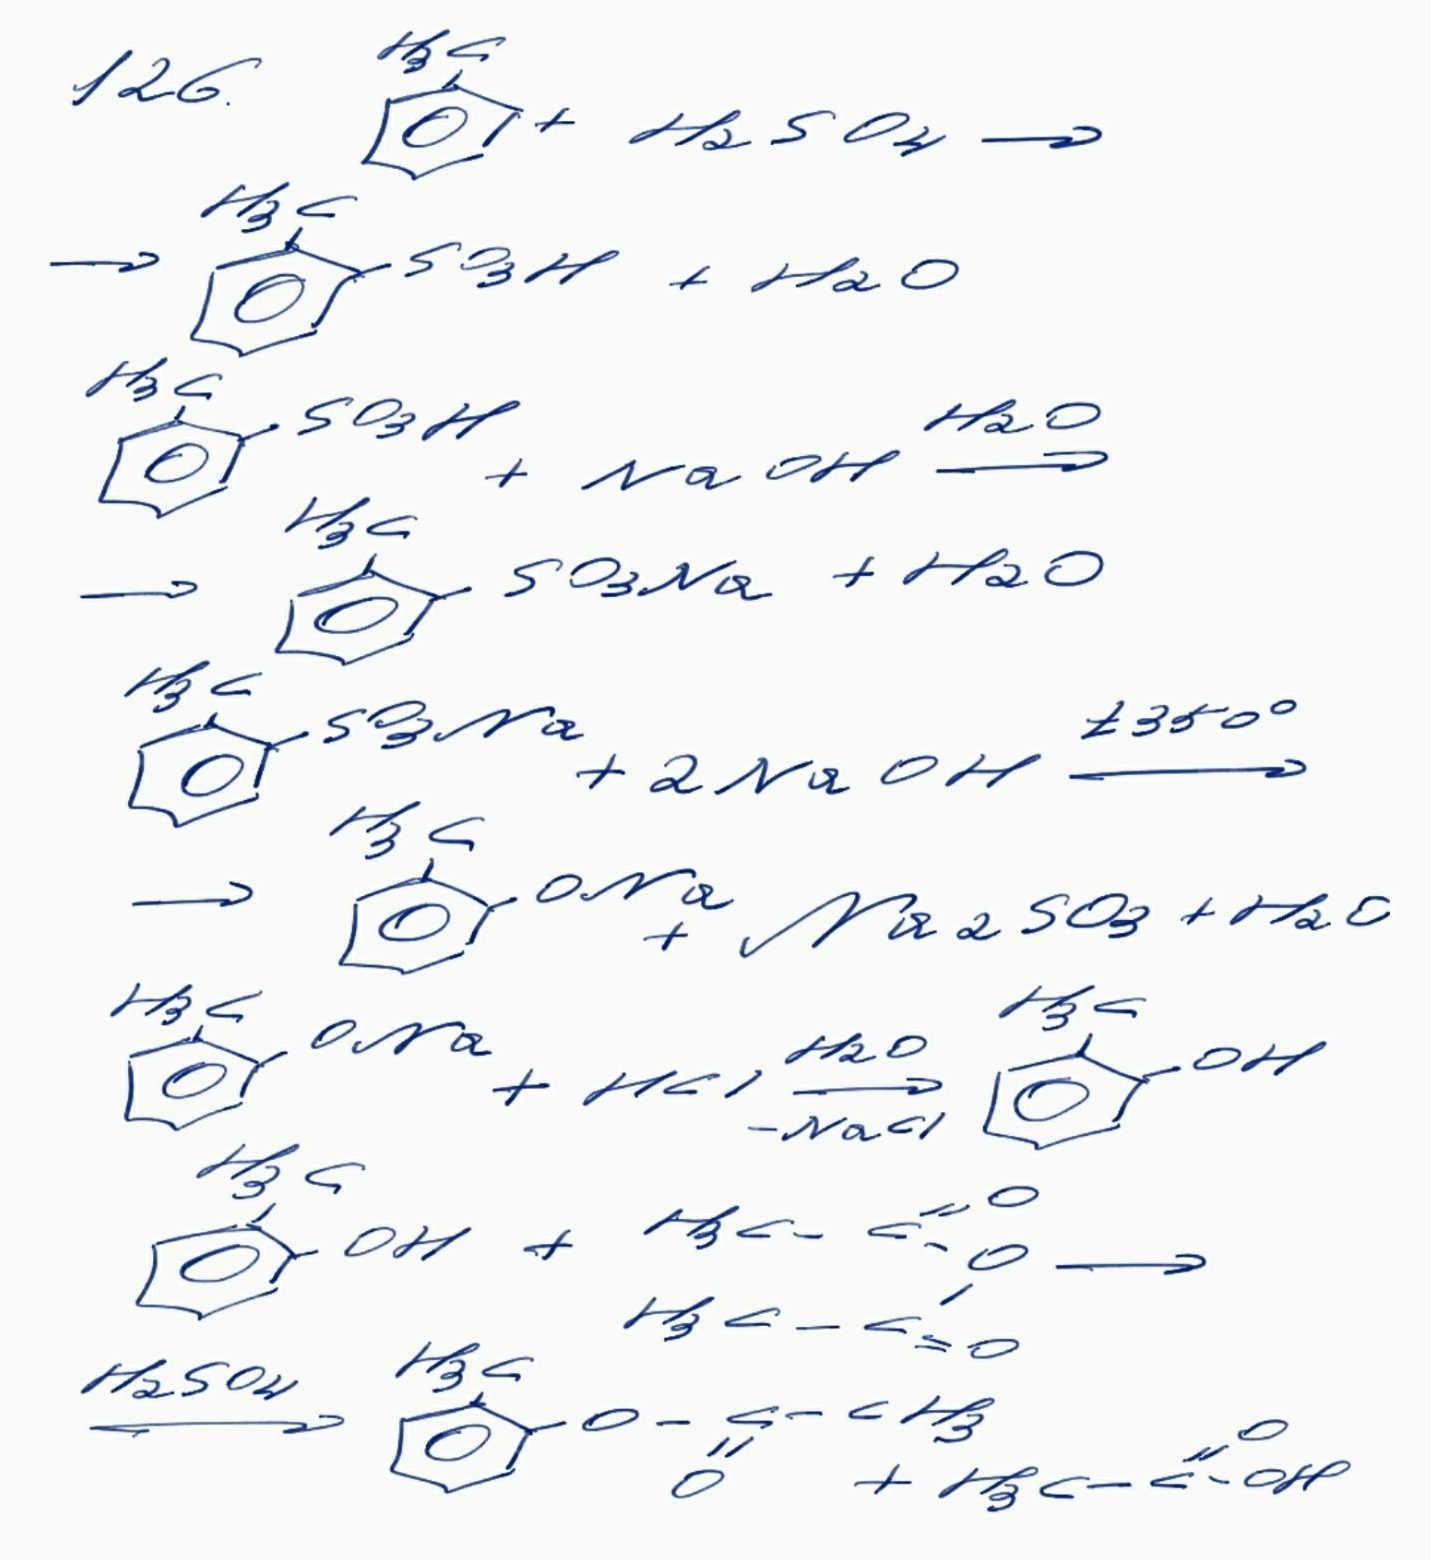 126.
H3C
+ H2SO4 →
H3C
→ SO3H + H2O
H3C
SO3H + NaOH H2O →
H3C
→ SO3Na + H2O
H3C
SO3Na + 2NaOH t350° →
H3C
→ ONa + Na2SO3 + H2O
H3C H3C
ONa + HCl H2O → OH
-NaCl
H3C
OH + H3C - C = O - O →
H3C - C = O
H2SO4 → H3C
O - C - CH3
= O + H3C - C = O - OH